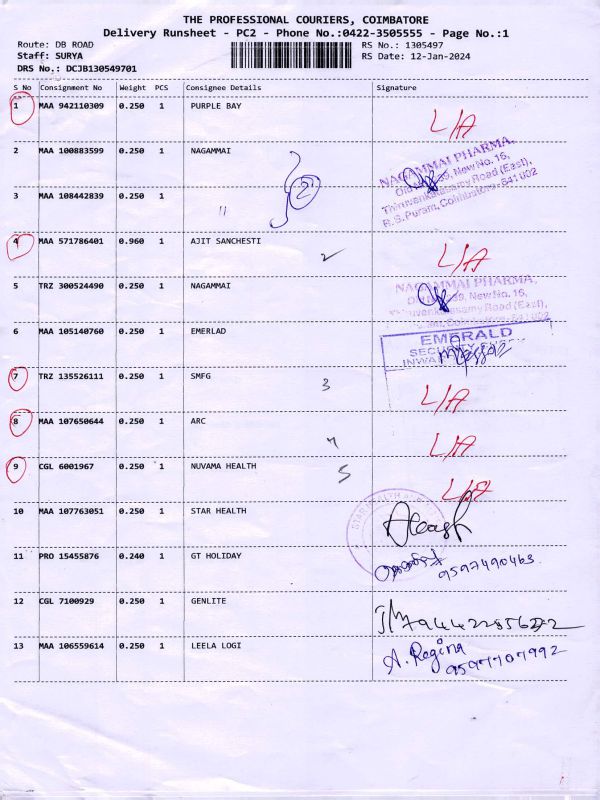 THE PROFESSIONAL COURIERS, COIMBATORE
Delivery Runsheet - PC2 - Phone No.:0422-3505555 - Page No.:1
Route: DB ROAD RS No.: 1305497
Staff: SURYA RS Date: 12-Jan-2024
DRS No.: DCJB130549701
S No Consignment No Weight PCS Consignee Details Signature
1 MAA 942110309 0.250 1 PURPLE BAY L/A
2 MAA 100883599 0.250 1 NAGAMMAI
NAGAMMAI PHARMA,
New No. 16,
Thiruvenkatasamy Road (East),
R.S.Puram, Coimbatore-641 002
3 MAA 108442839 0.250 1 " 2
4 MAA 571786401 0.960 1 AJIT SANCHESTI 2 L/A
5 TRZ 300524490 0.250 1 NAGAMMAI
NAGAMMAI PHARMA,
New No. 16,
Road (East),
6 MAA 105140760 0.250 1 EMERLAD
EMERALD
7 TRZ 135526111 0.250 1 SMFG 3 L/A
8 MAA 107650644 0.250 1 ARC 4 L/A
9 CGL 6001967 0.250 1 NUVAMA HEALTH 5 L/A
10 MAA 107763051 0.250 1 STAR HEALTH
STAR HEALTH
11 PRO 15455876 0.240 1 GT HOLIDAY 9597490463
12 CGL 7100929 0.250 1 GENLITE
13 MAA 106559614 0.250 1 LEELA LOGI A. Regina
9597707992